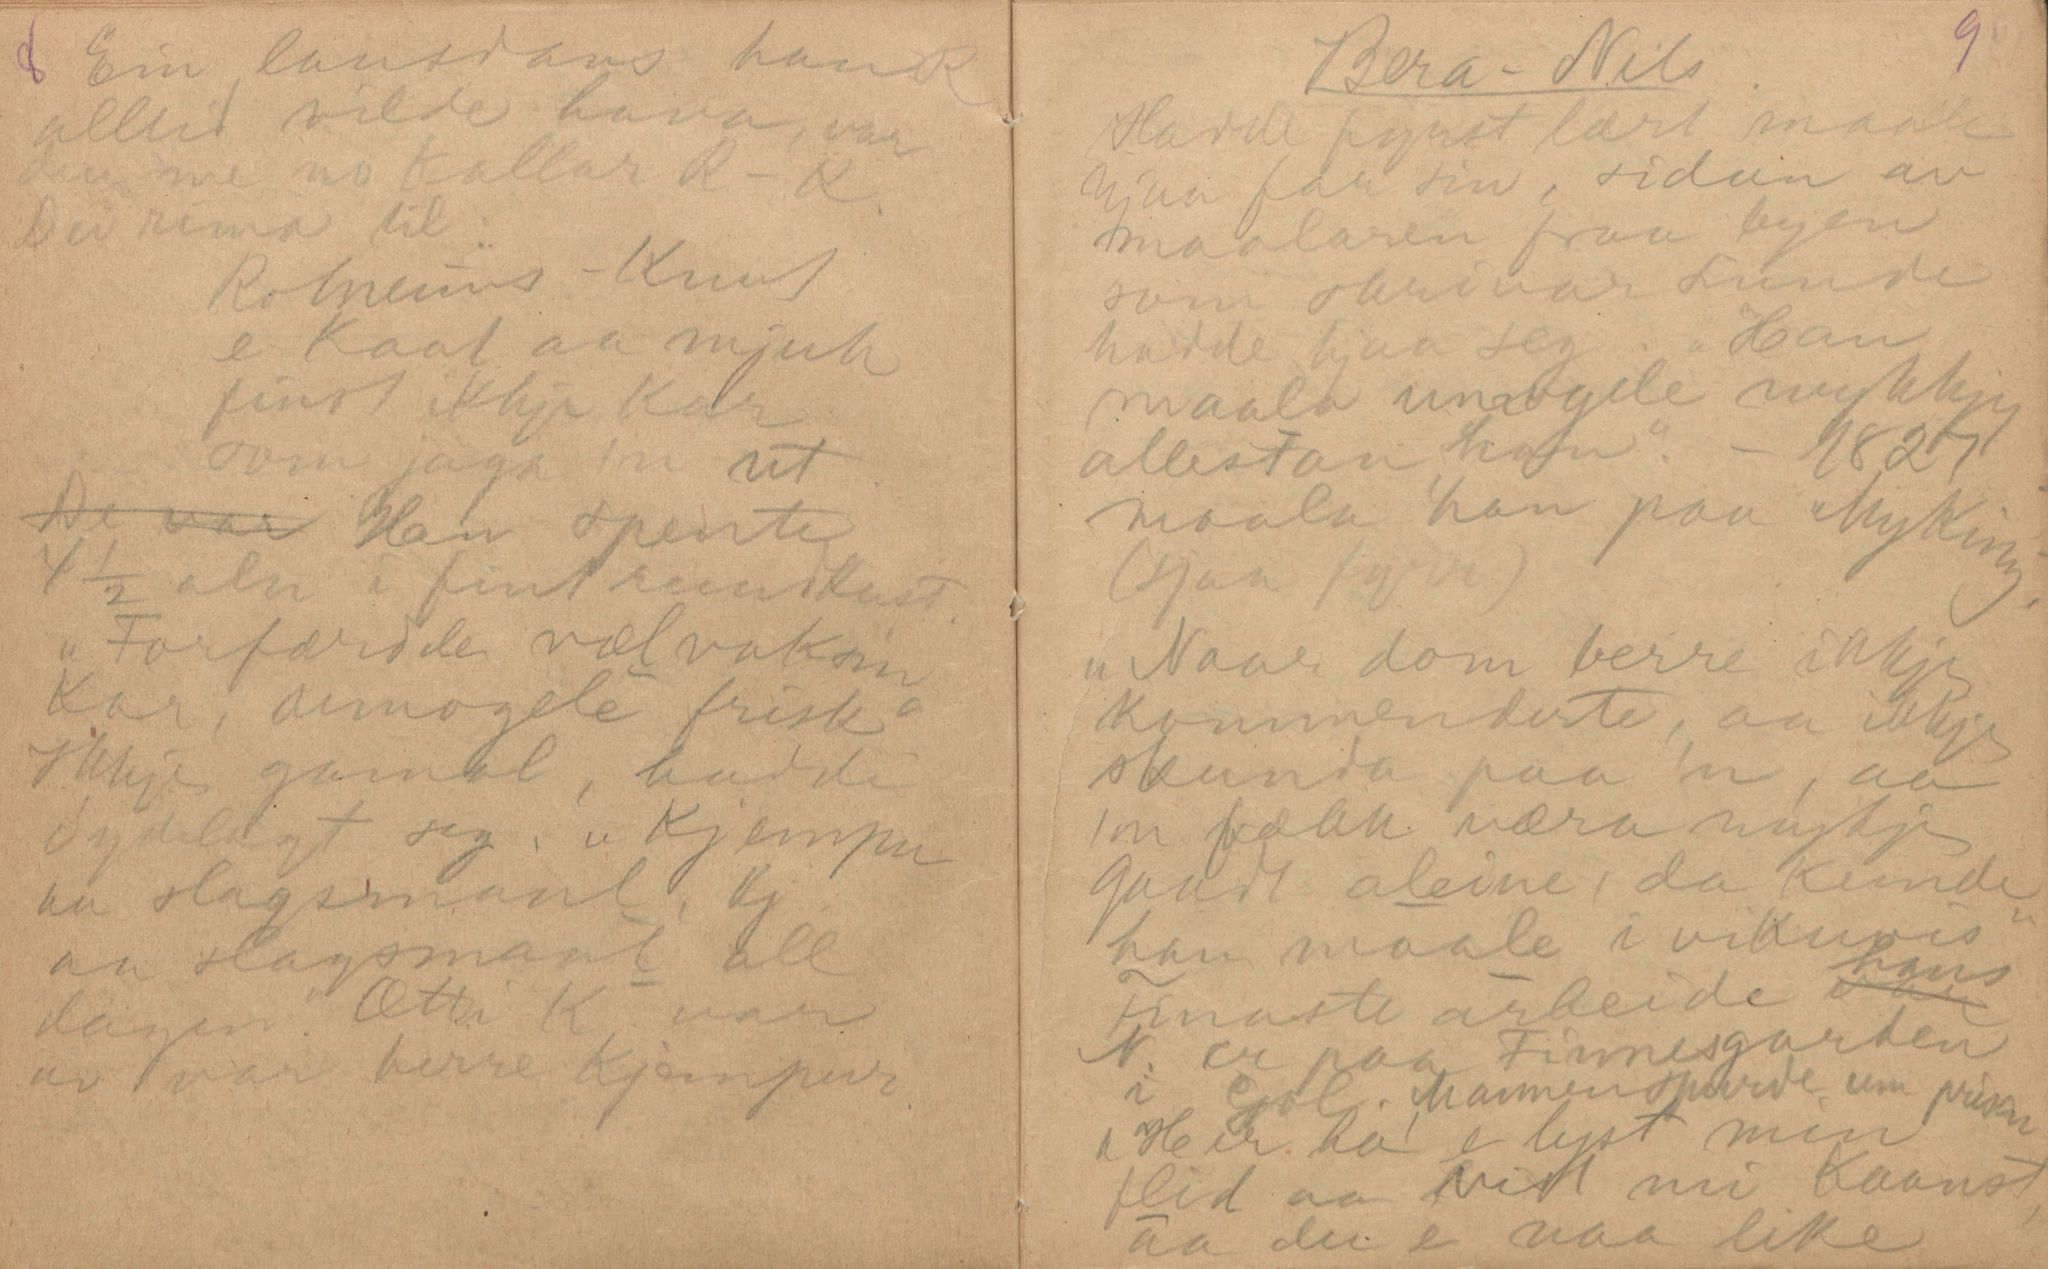 8
Ein lausdans han K
alltid vilde hava, var
den me no kallar R-K.
Dei rima til:
Rotneims-Knut
e kaat aa mjuk
finst ikkje kar
som jaga 'n ut
De var Han spente
4 1/2 aln i fint rundkast.
"Forfærdele vælvaksin
Kar, umogele frisk"
Ikkje gamal, hadde
øydelagt seg. "Kjempe
aa slagsmaal, kj
aa slagsmaal all
dagen." Ætti K var
av var berre kjempur.
9
Bera-Nils
Hadde fyrst lært maale
hjaa far sin, sidan av
maalaren fraa byen
som skrivar Lunde
hadde hjaa seg. "Han
maala umogele mykkjy
allestan han". - 1827
maala han paa Myking.
(sjaa fyrr)
"Naar dom berre ikkje
kommenderte, aa ikkje
skunda paa 'n, aa
'n fækk væra mykje
gaadt aleine, da kunde
han maale i vikuvis"
Finaste arbeide var hans
N. er paa Finnesgarden
i Gol. Mannen spurde um prisen
"Her ha e lyst min
flid aa vist mi kaanst,
aa du e naa like